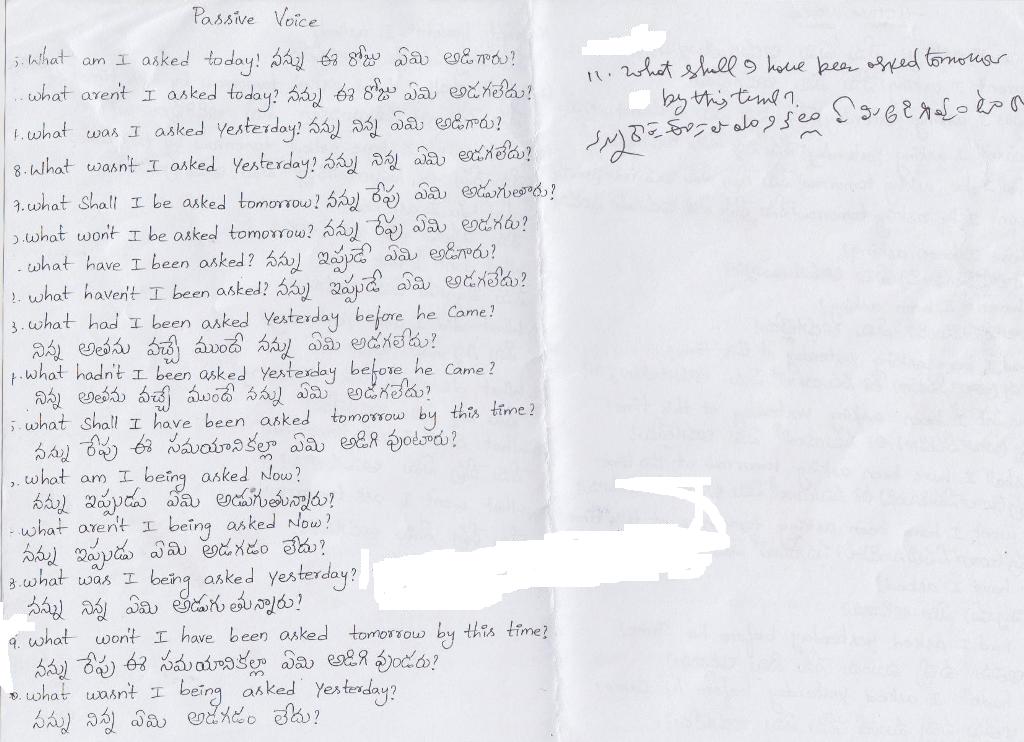 Passive Voice
5. What am I asked today? నన్ను ఈ రోజు ఏమి అడిగారు?
what aren't I asked today? నన్ను ఈ రోజు ఏమి అడగలేదు?
what was I asked Yesterday? నన్ను నిన్న ఏమి అడిగారు?
8. What wasn't I asked Yesterday? నన్ను నిన్న ఏమి అడగలేదు?
9. what Shall I be asked tomorrow? నన్ను రేపు ఏమి అడుగుతారు?
what won't I be asked tomorrow? నన్ను రేపు ఏమి అడగరు?
what have I been asked? నన్ను ఇప్పుడే ఏమి అడిగారు?
2. what haven't I been asked? నన్ను ఇప్పుడే ఏమి అడగలేదు?
3. what had I been asked Yesterday before he Came?
నిన్న అతను వచ్చే ముందే నన్ను ఏమి అడగలేదు?
what hadn't I been asked Yesterday before he Came?
నిన్న అతను వచ్చే ముందే నన్ను ఏమి అడగలేదు?
5. what Shall I have been asked tomorrow by this time?
నన్ను రేపు ఈ సమయానికల్లా ఏమి అడిగి వుంటారు?
what am I being asked Now?
నన్ను ఇప్పుడు ఏమి అడుగుతున్నారు?
what aren't I being asked Now?
నన్ను ఇప్పుడు ఏమి అడగడం లేదు?
8. what was I being asked yesterday?
నన్ను నిన్న ఏమి అడుగుతున్నారు?
9. what won't I have been asked tomorrow by this time?
నన్ను రేపు ఈ సమయానికల్లా ఏమి అడిగి వుండరు?
what wasn't I being asked Yesterday?
నన్ను నిన్న ఏమి అడగడం లేదు?
11. what shall I have been asked tomorrow
by this time?